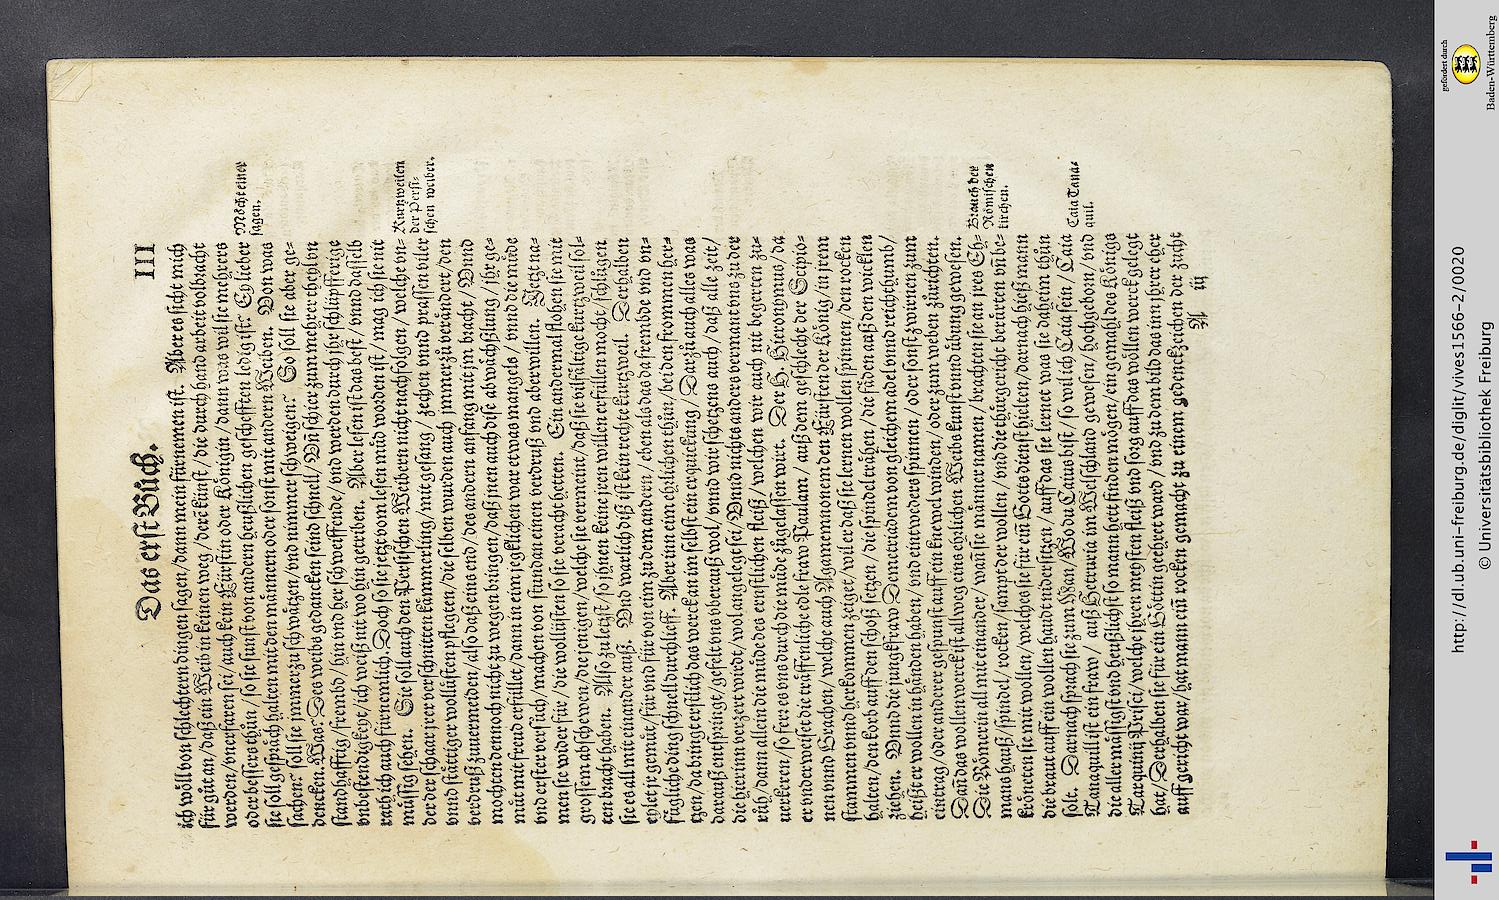 Das erst Bůch.
III
ich wöll von schlechtern dingen sagen/ dann mein fürnemen ist. Aber es sicht mich
für gůt an/ daß ein Weib in keinen weg/ der künst/ die durch hand arbeit volbracht
werden/ vnerfaren sei/ auch kein Fürstin oder Königin/ dann was wil sie mehrers
oder bessers thůn/ so sie sunst von andern heußlichen geschefften ledig ist: Ey lieber
sie soll gespräch halten mit den männern oder sonst mit andern Weiben. Von was
sachen? soll sie jmmer zu schwätzen/ vnd nimmer schweigen? So söll sie aber ge-
dencken. Was? Des weibs gedancken seind schnell/ Vñ schier zum mehrer theyl vn
standhafftig/ frembd/ hin vnd her schweiffende/ vnd werden durch ihr schlüpfferige
vnbestendigkeyt/ ich weiß nit wo hin getriben. Aber lesen ist das best/ vnnd dasselb
rath ich auch fürnemlich. Doch so sie jetzt vom lesen müd worden ist/ mag ich sie nit
müssig sehen. Sie soll auch den Persischen Weibern nicht nachfolgen/ welche vn-
der der schaar jrer verschnitten kämmerling/ mit gesang/ zechen vnnd prassen viler
vnnd stättiger wollüsten pflegten/ die selben wurden auch jmmerzů verändert/ den
verdruß zuuermeiden/ also daß eins end/ des andern anfang mit jm bracht/ Vnnd
mochten dennoch nicht zu wegen bringen/ daß jnen auch dise abwächßlung/ jhr ge-
můt mit freud erfüllet/ dann in eim jegklichen war etwas mangels/ vnnd die müde
vnd erster versůch/ machen von stundan einen verdruß vnd aberwillen. Jetzt na-
men sie wider für/ die wollüsten so sie veracht hetten. Ein andermal flohen sie mit
grossem abschewen/ die jenigen/ welche sie vermeint/ daß sie vilfältige kurtzweil sol-
ten bracht haben. Also zu letzst/ so ihnen keine jren willen erfüllen mocht/ schlügen
sie es all mit einander auß. Vnd warlich diß ist kein rechte kurtzweil. Derhalben
eylet jr gemůt/ für vnd für von eim zu dem andern/ eben als das da frembde vnd vn-
fügliche ding schnell durchlieff. Aber inn eim ehrlichen thůn/ bei den frommen her-
tzen/ da bringt erstlich das werck an im selbst ein erquickung/ Darzů auch alles was
darauß entspringt/ gefelt vns vberauß wol/ vnnd wir schetzens auch/ daß alle zeit/
die hierinn verzert wirdt/ wol angelegt sei/ Vnnd nichts anders vermant vns zu der
růh/ dann allein die müde des ernstlichen fleiß/ welchen wir auch nit begerten zu-
uerkeren/ so fern es vns durch die müde zůgelassen wirt. Der H. Hieronymus/ da
er vnderweiset die träffenliche edle fraw Paulam/ auß dem geschlecht der Scipio-
nen vnnd Grachen/ welche auch Agamemnonem den Fürsten der König/ in jrem
stammen vnnd herkommen zeiget/ wil er daß sie lernen wollen spinnen/ den rocken
halten/ den korb auff den schoß setzen/ die spindel träben/ die fäden auß den wicklen
ziehen. Vnnd die jungkfraw Demetriadem von gleichem adel vnnd reichthumb/
heißt er wollen in händen haben/ vnd eintweders spinnen/ oder sonst zwirnen zum
eintrag/ oder anderer gespunst auff ein knewel winden/ oder zum weben zůrichten.
Dañ das wollenwerck ist allweg eins ehrlichen Weibs kunst vnnd übung gewesen.
Die Römerin all mit einander/ wañ sie männer namen/ brachten sie an jres Eh-
mans hauß/ spindel/ rocken/ sampt der wollen/ vnd die thürgericht berürten vñ be-
kröneten sie mit wollen/ welches sie für eiñ Gottsdienst hielten/ darnach hieß mann
die braut auff ein wollen haudt nidersitzen/ auff das sie lernet was sie daheim thůn
solt. Darnach sprach sie zum Man/ Wo du Caius bist/ so wil ich Caia sein/ Caia
Tanaquill ist ein fraw/ auß Hetruria im Welschland gewesen/ hochgeborn/ vnd
die aller mässigst vnd heußlichst so mann hett finden mögen/ ein gemahl des Königs
Tarquinij Prisci/ welche jhren meysten fleiß vnd sorg auff das wöllenwerck gelegt
hat/ Derhalben sie für ein Göttin geehret ward/ vnd zu dem bild das inn jhrer eher
auffgericht war/ hat mann eiñ rocken gemacht zu einem gedenckzeichen der zucht
A iij
Möcht einer
sagen.
Kurtzweilen
der Persi-
schen weiber.
Brauch der
Römischen
kirchen.
Caia Tana-
quil.
gefördert durch
Baden-Württemberg
http://dl.ub.uni-freiburg.de/diglit/vives1566-2/0020
© Universitätsbibliothek Freiburg